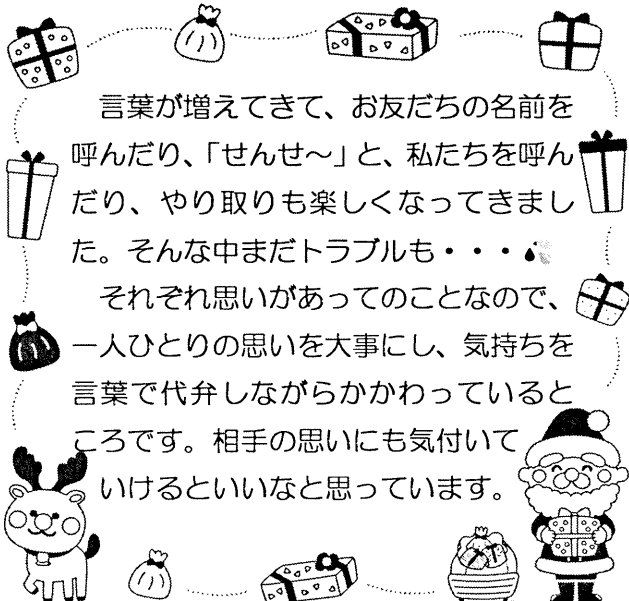 言葉が増えてきて、お友だちの名前を
呼んだり、「せんせ～」と、私たちを呼ん
だり、やり取りも楽しくなってきまし
た。そんな中まだトラブルも・・・💦
それぞれ思いがあってのことなので、
一人ひとりの思いを大事にし、気持ちを
言葉で代弁しながらかかわっていると
ころです。相手の思いにも気付いて
いけるといいなと思っています。